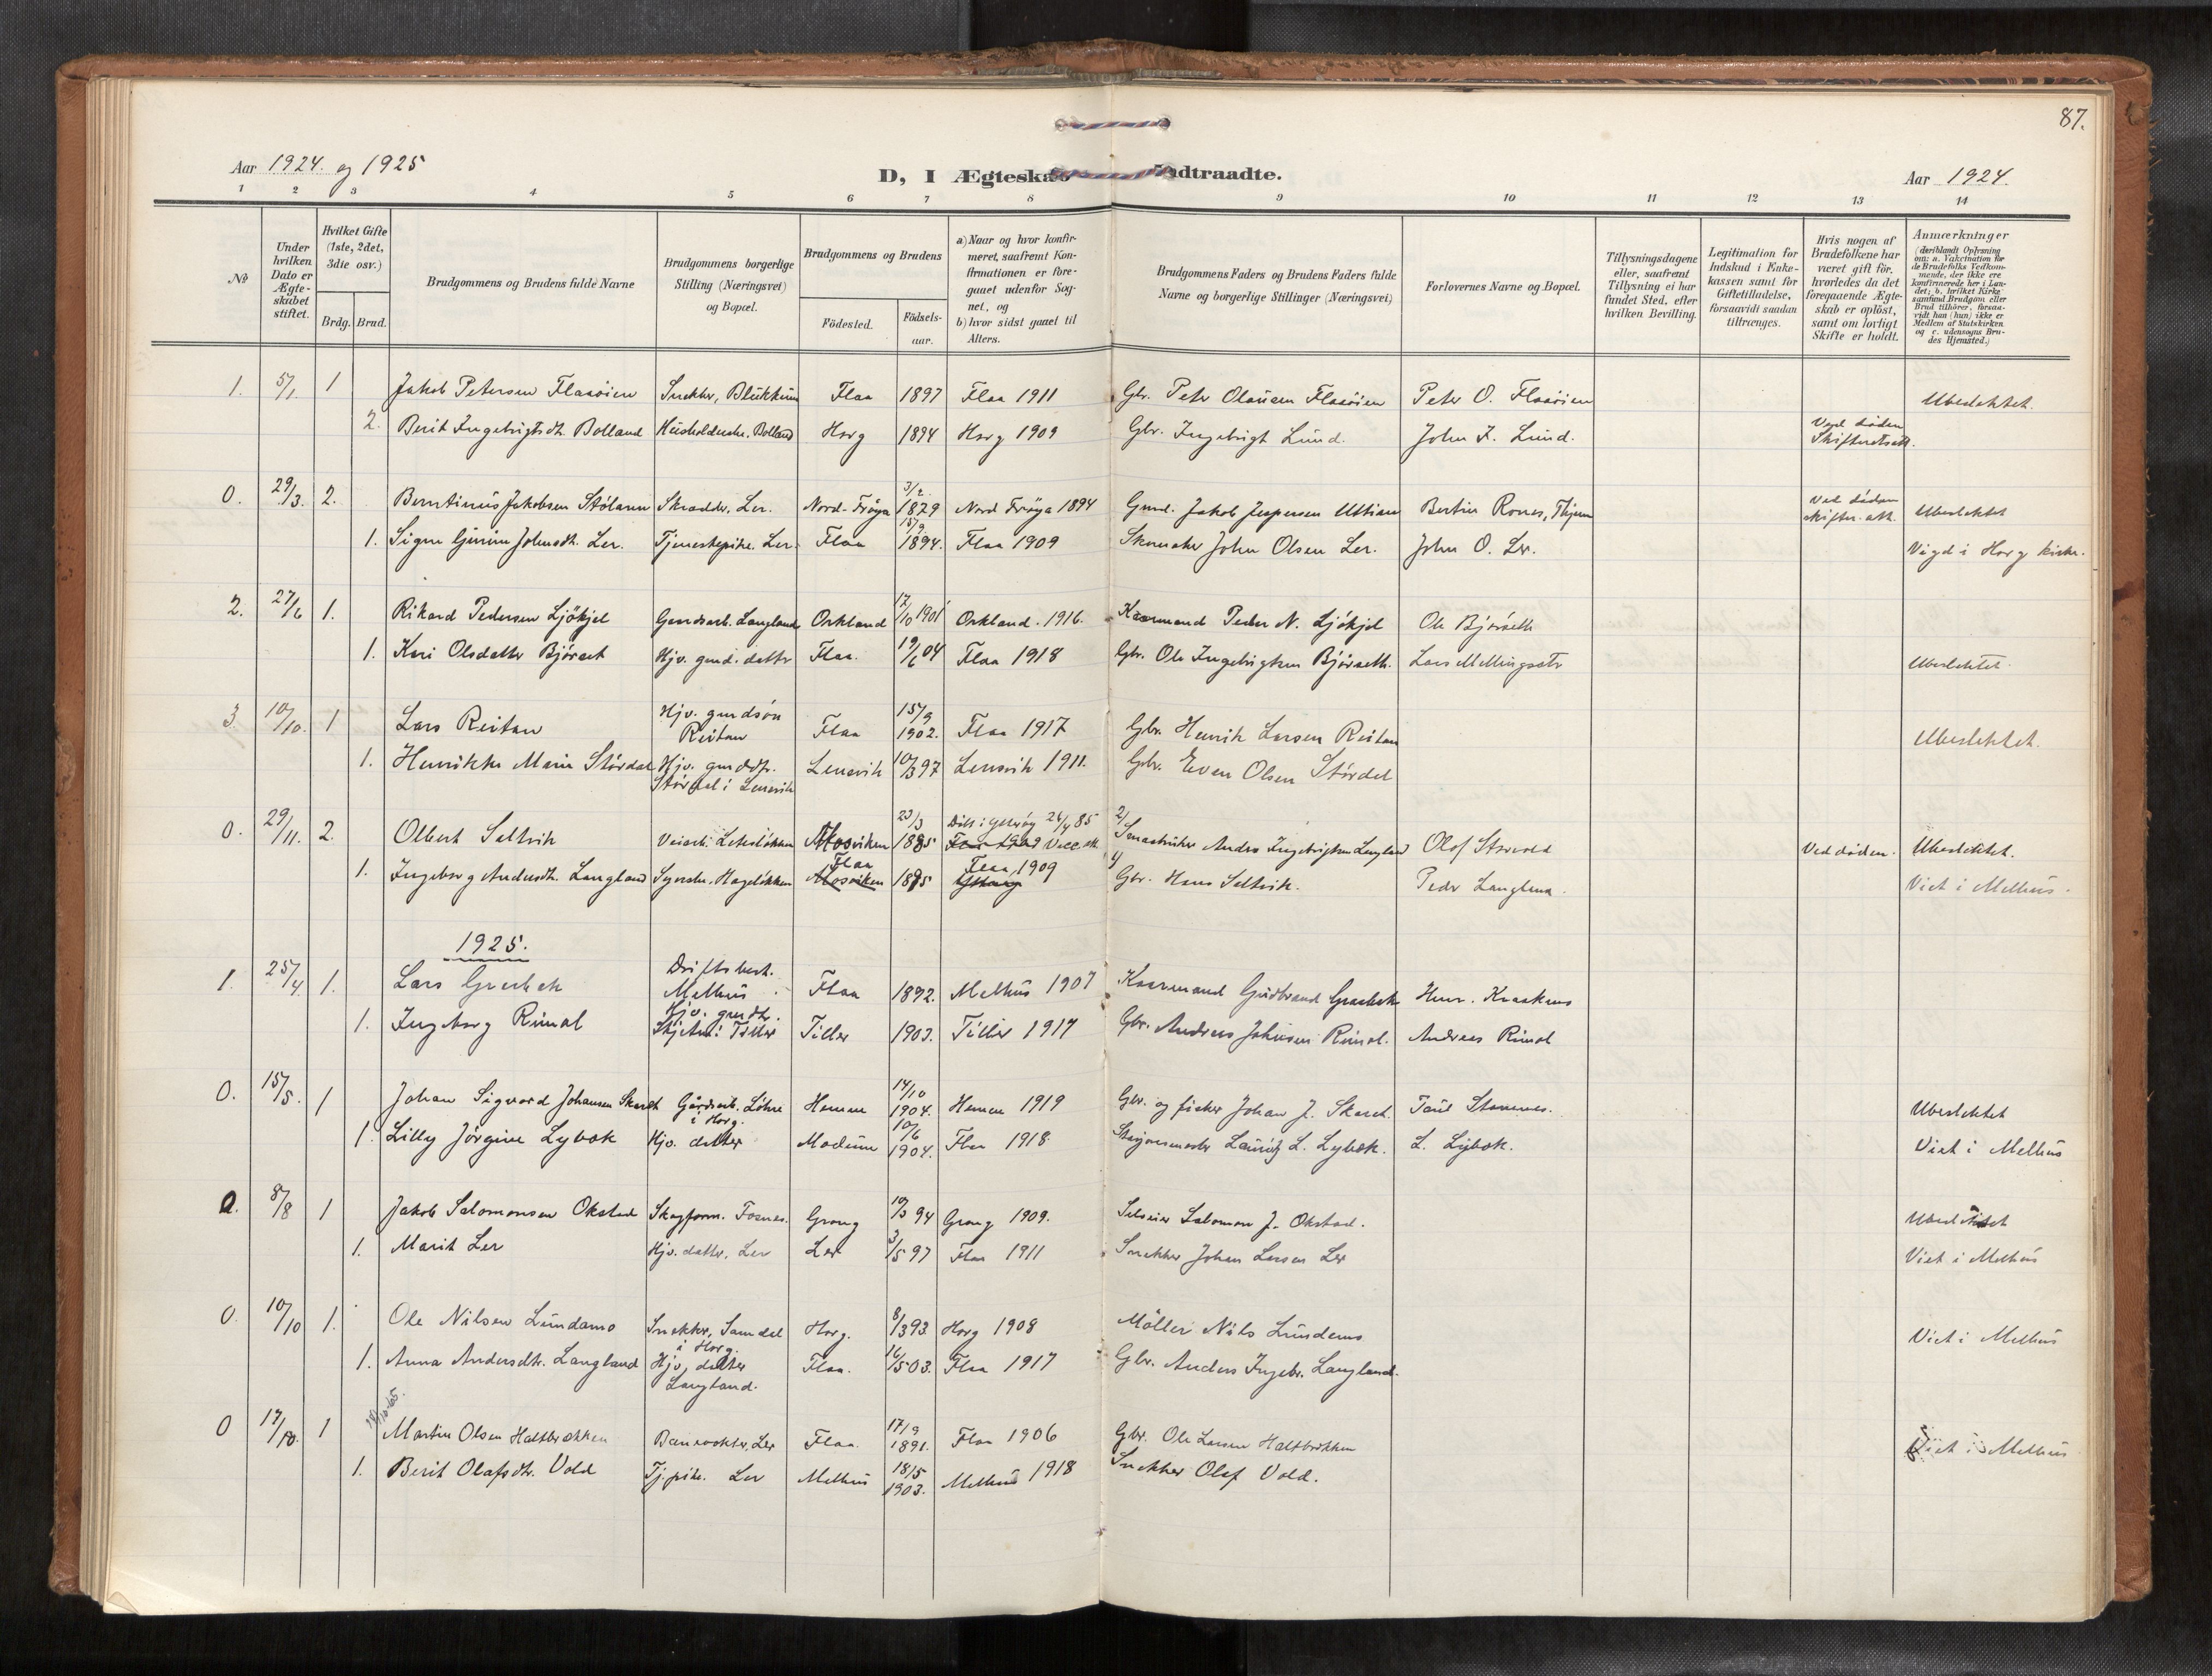 87.
Aar 1924. og 1925
D, I Ægteska
ndtraadte.
Aar 1924.
1 2 3 4 5 6 7 8 9 10 11 12 13 14
No
Under hvilken Dato er Ægteskabet stiftet.
Hvilket Gifte (1ste, 2det, 3die osv.)
Brdg. Brud.
Brudgommens og Brudens fulde Navne
Brudgommens borgerlige Stilling (Næringsvei) og Bopæl.
Brudgommens og Brudens
Födested.
Födselsaar.
a) Naar og hvor konfirmeret, saafremt Konfirmationen er foregaaet udenfor Sognet, og
b) hvor sidst gaaet til Alters.
Brudgommens Faders og Brudens Faders fulde Navne og borgerlige Stillinger (Næringsvei)
Forlovernes Navne og Bopæl.
Tillysningsdagene eller, saafremt Tillysning ei har fundet Sted, efter hvilken Bevilling.
Legitimation for Indskud i Enkekassen samt for Giftetilladelse, forsaavidt saadan tiltrænges.
Hvis nogen af Brudefolkene har været gift för, hvorledes da det foregaaende Ægteskab er oplöst, samt om lovligt Skifte er holdt.
Anmærkninger
(deriblandt Oplysning om: a. Vakcination for de Brudefolks Vedkommende, der ikke ere konfirmerede her i Landet; b. hvilket Kirkesamfund Brudgom eller Brud tilhörer, forsaavidt han (hun) ikke er Medlem af Statskirken og c. udensogns Brudes Hjemsted.)
1. 5/1. 1 Jakob Petersen Flaaöien Snekker, Flaa 1897 Flaa 1911 Gbr. Peter Olausen Flaaöien Peter O. Flaaöien Ubeslektet.
2. Berit Ingebrigtsdt. Bolland Husholderske, Bolland Horg 1894 Horg 1909 Gbr. Ingebrigt Lund. John I. Lund. Ved döden Skifteattest.
0. 29/3. 2. Berntinus Jakobsen Stölann Skradder, Ler. Nord-Fröya 3/2 1879 Nord Fröya 1894 Gmd. Jakob Jespersen Uttian Bertin Rones, Ved döden skifte. att. Ubeslektet
1. Signe Gurine Johnsdt. Ler. Tjenestepike. Ler. Flaa 15/9 1894. Flaa 1909 Skomaker John Olsen Ler. John O. Ler. Vigd i Horg kirke.
2. 27/6 1. Rikard Pedersen Ljökjel Gaardsarb. Langland Orkland 17/10 1901 Orkland. 1916. Kaarmand Peder N. Ljökjel Ole Björaeth
1. Kari Olsdatter Björaet Hjv. gmd. datter Flaa. 19/6 04 Flaa 1918 Gbr. Ole Ingebrigtsen Björaeth. Lars Mellingsetr Ubeslektet.
3. 10/10. 1 Lars Reitan Hjv. gmdsön Reitan Flaa 15/9 1902. Flaa 1917 Gbr. Henrik Larsen Reitan Ubeslektet.
1. Henrikke Marie Stördal Hjv. gmddtr. Stördal i Lensvik Lensvik 10/3 97 Lensvik 1911. Gbr. Even Olsen Stördal
0. 29/11. 2. Olbert Saltvik Veiarb. Mosviken 23/3 1885 Döbt i Ytteröy 26/4 85 2/ Smaabruker Anders Ingebrigtsen Langland Olof Storvold Ved döden. Ubeslektet.
1. Ingeborg Andersdt. Langland Syerske, Hageløkken Flaa Mosviken 1885 Flaa, 1909 1/ Gbr. Hans Saltvik. Peder Langland. Viet i Melhus.
1925.
1. 25/4 1. Lars Graabek Driftsbest. Melhus Flaa 1892. Melhus 1907 Kaarmand Gudbrand Graabek Henr. Kraakmo
1. Ingeborg Rimol Hjv. gmdtr. Tiller Tiller 1903. Tiller 1917 Gbr. Andreas Johnsen Rimol. Andreas Rimol
0. 15/5. 1 Johan Sigvard Johansen Skardt Gårdsarb. Löhre i Horg. Hemne 14/10 1904. Hemne 1919 Gbr. og fisker Johan J. Skardt. Paul Stamnes. Ubeslektet
1. Lilly Jörgine Lybæk Hjv. datter Modum 10/6 1904. Flaa 1918 Stasjonsmester Lauritz L. Lybæk. L. Lybæk. Viet i Melhus
0. 8/8 1 Jakob Salomonsen Okstad Skogform. Fosnes. Grong 19/3 94 Grong 1909. Selveier Salomon J. Okstad. Ubeslektet
1. Marit Ler Hjv. datter, Ler Ler 3/5 97 Flaa 1911 Snekker Johan Larsen Ler Viet i Melhus
0. 10/10 1. Ole Nilsen Lundamo Snekker, Samdal i Horg. Horg. 8/3 93 Horg 1908 Möller Nils Lundamo Viet i Melhus
1. Anna Andersdtr. Langland Hjv. datter Langland. Flaa. 16/5 03. Flaa 1917 Gbr. Anders Ingebr. Langland.
0 17/10. 1 Martin Olsen Haltbrækken Banevokter, Ler Flaa. 17/9 1891. Flaa 1906 Gbr. Ole Larsen Haltbrækken Viet i Melhus
1. Berit Olafsdtr. Vold Tj.pike. Ler Melhus 18/5 1903. Melhus 1918 Snekker Olaf Vold.